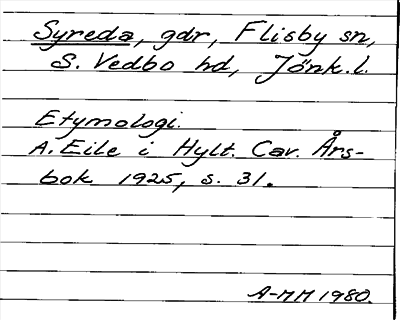 Syreda, gdr, Flisby sn,
S. Vedbo hd, Jönk. l.
Etymologi.
A. Eile i Hylt. Cav. Års-
bok 1925, s. 31.
A-MM 1980.